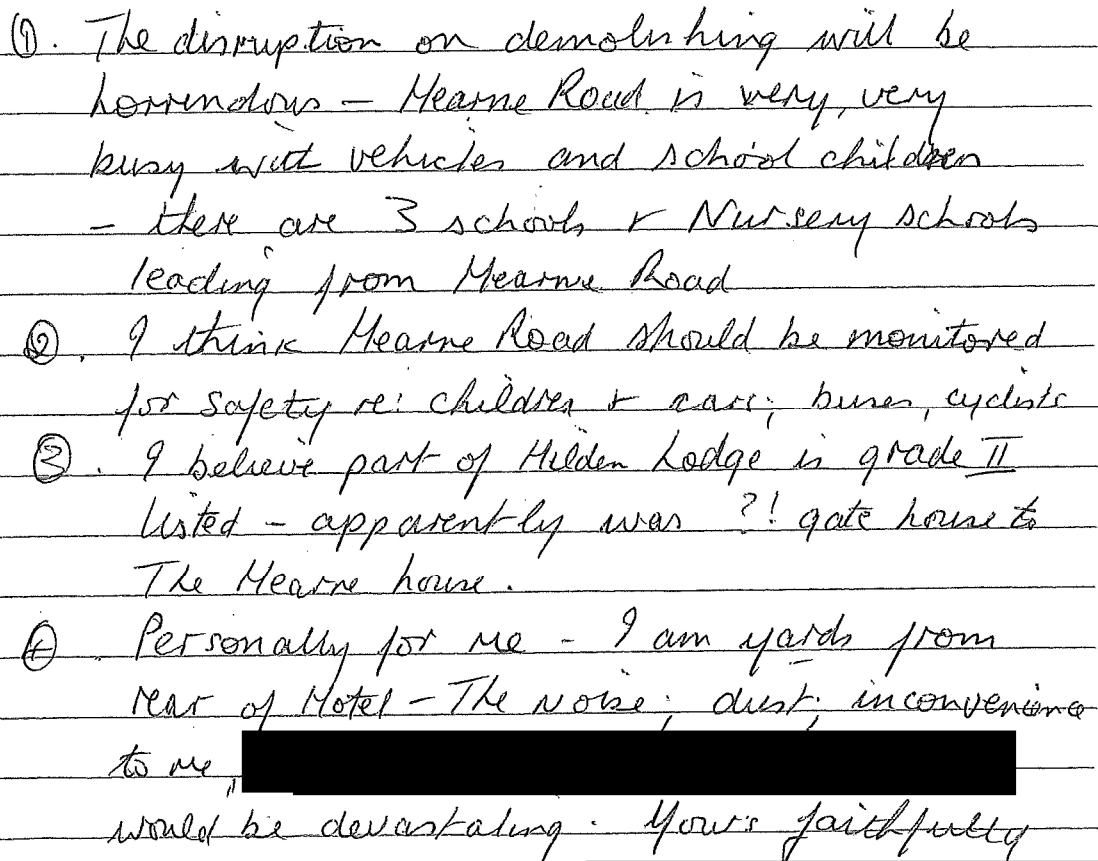 ①. The disruption on demolishing will be
horrendous – Hearne Road is very, very
busy with vehicles and school children
– there are 3 schools & Nursery schools
leading from Hearne Road
②. I think Hearne Road should be monitored
for safety re: children & cars; buses, cyclists
③. I believe part of Hilden Lodge is grade II
listed – apparently was ?! gate house to
The Hearne house.
④. Personally for me – I am yards from
rear of Hotel – The Noise; dust; inconvenience
to me,
would be devastating. Yours faithfully